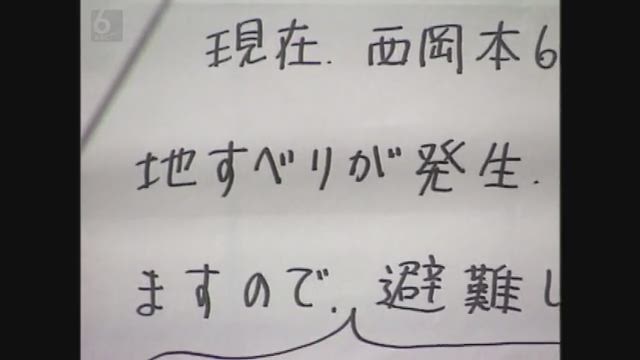 6
現在. 西岡本6
地すべりが発生.
ますので. 避難し